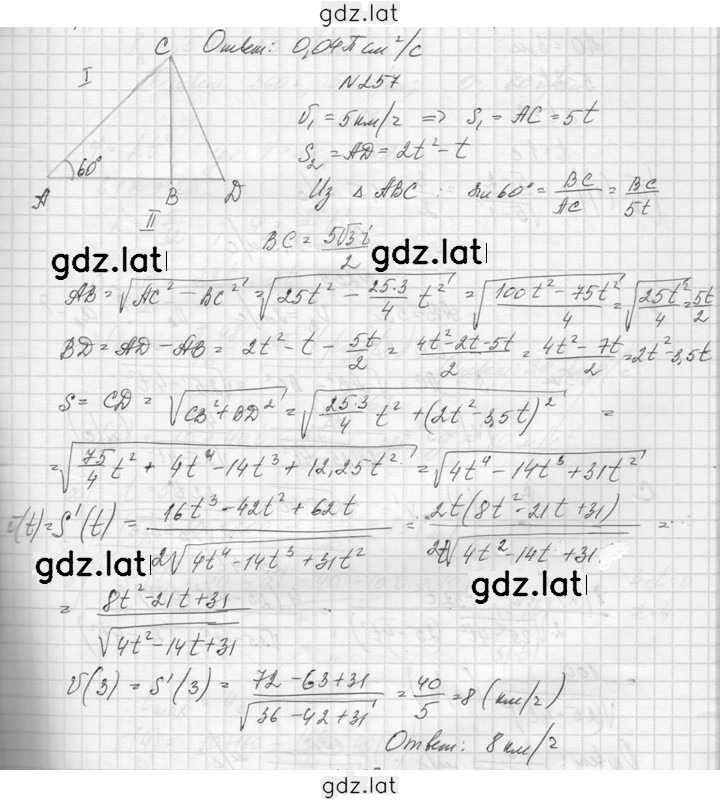 gdz.lat
C Ответ: 0,04π см²/с
I
N257
V₁ = 5 км/ч => S₁ = AC = 5t
S₂ = AD = 2t² - t
60°
A B D
Из △ ABC : sin 60° = BC/AC = BC/5t
II
BC = 5√3t/2
gdz.lat gdz.lat
AB = √(AC² - BC²) = √(25t² - 25·3/4 t²) = √((100t² - 75t²)/4) = √(25t²/4) = 5t/2
BD = AD - AB = 2t² - t - 5t/2 = (4t² - 2t - 5t)/2 = (4t² - 7t)/2 = 2t² - 3,5t
S = CD = √(CB² + BD²) = √(25·3/4 t² + (2t² - 3,5t)²) =
= √(75/4 t² + 4t⁴ - 14t³ + 12,25t²) = √(4t⁴ - 14t³ + 31t²)
v(t) = S'(t) = (16t³ - 42t² + 62t)/(2√(4t⁴ - 14t³ + 31t²)) = 2t(8t² - 21t + 31)/(2t√(4t² - 14t + 31)) =
gdz.lat gdz.lat
= (8t² - 21t + 31)/√(4t² - 14t + 31)
V(3) = S'(3) = (72 - 63 + 31)/√(36 - 42 + 31) = 40/5 = 8 (км/ч)
Ответ: 8 км/ч
gdz.lat